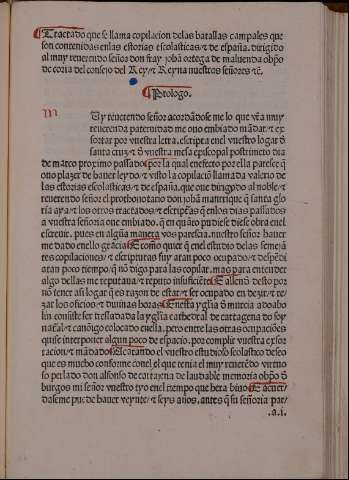 Tractado que se llama copilacion delas batallas campales que
son contenidas enlas estorias escolasticas ⁊ de españa. dirigido
al muy reuerendo señor don fray johã ortega de maluenda obpõ
de coria del consejo del Rey ⁊ Reyna nuestros señores ⁊c̃.
Prologo.
m Uy reuerendo señor acordãdose me lo que vr̃a muy
reuerenda paternidad me ouo embiado mãdar ⁊ ex
sortar por vuestra letra. escripta enel vuestro logar ð
santa cruz ⁊ ð vuestra mesa episcopal postrimero dia
de março proximo passado por la qual enefecto por ella paresce q̃
ouo plazer de hauer leydo ⁊ visto la copilaciõ llamada valerio de
las estorias escolasticas ⁊ de españa. que oue dirigydo al noble ⁊
reuerendo señor el prothonotario don johã manrrique q̃ santa glo
ria aya ⁊ los otros tractados ⁊ escripturas q̃ enlos dias passados
a vuestra señoria oue embiado. q̃ en quãto pudiese diese obra enel
escreuir. pues en algũa manera vos parescia nuestro señor hauer
me dado enello gracia Como quier q̃ enel estudio delas semejã
tes copilaciones ⁊ escripturas fuy atan poco ocupado ⁊ despẽdi
atan poco tiempo q̃ nõ digo para las copilar. mas para entender
algo dellas me reputaua ⁊ reputo insuficiẽte E allend̃ desto por
nõ tener asi logar q̃ es razon de estar ⁊ ser ocupado en dezir ⁊ re
zar los oficios ⁊ diuinas horas E nesta yglia ð murcia adonbo
lũ cõsiste ser trasladada la yglia cathedral de cartagena do soy
natal ⁊ canõigo colocado enella. pero entre las otras ocupaciões
quise interponer algun poco de espacio. por complir vuestra exor
tacion ⁊ mãdado Acatando el vuestro estudioso escolastico deseo
que es mucho conforme conel q̃ que tenia el muy reuerẽdo virtuo
so perlado don alfonso de cartajena de laudable memoria obpõ ð
burgos mi señor vuestro tyo enel tiempo que hera biuo E acuer
daseme pue de hauer veynte ⁊ seys años. antes q̃ su señoria par/
.a.i.